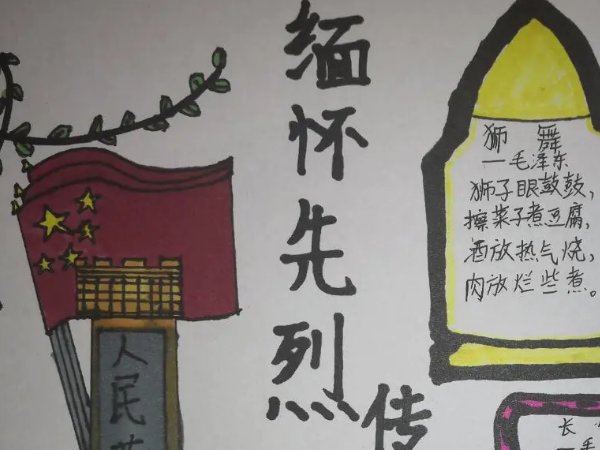 缅怀先烈
传
人民英
狮舞
—毛泽东
狮子眼鼓鼓,
擦菜子煮豆腐,
酒放热气烧,
肉放烂些煮。
长
—毛